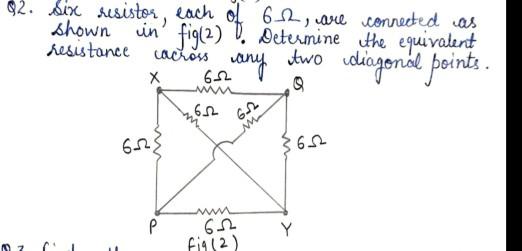 Q2. Six resistor, each of 6Ω, are connected as
shown in fig(2). Determine the equivalent
resistance across any two diagonal points.
X 6Ω Q
6Ω 6Ω
6Ω 6Ω
P 6Ω Y
fig(2)